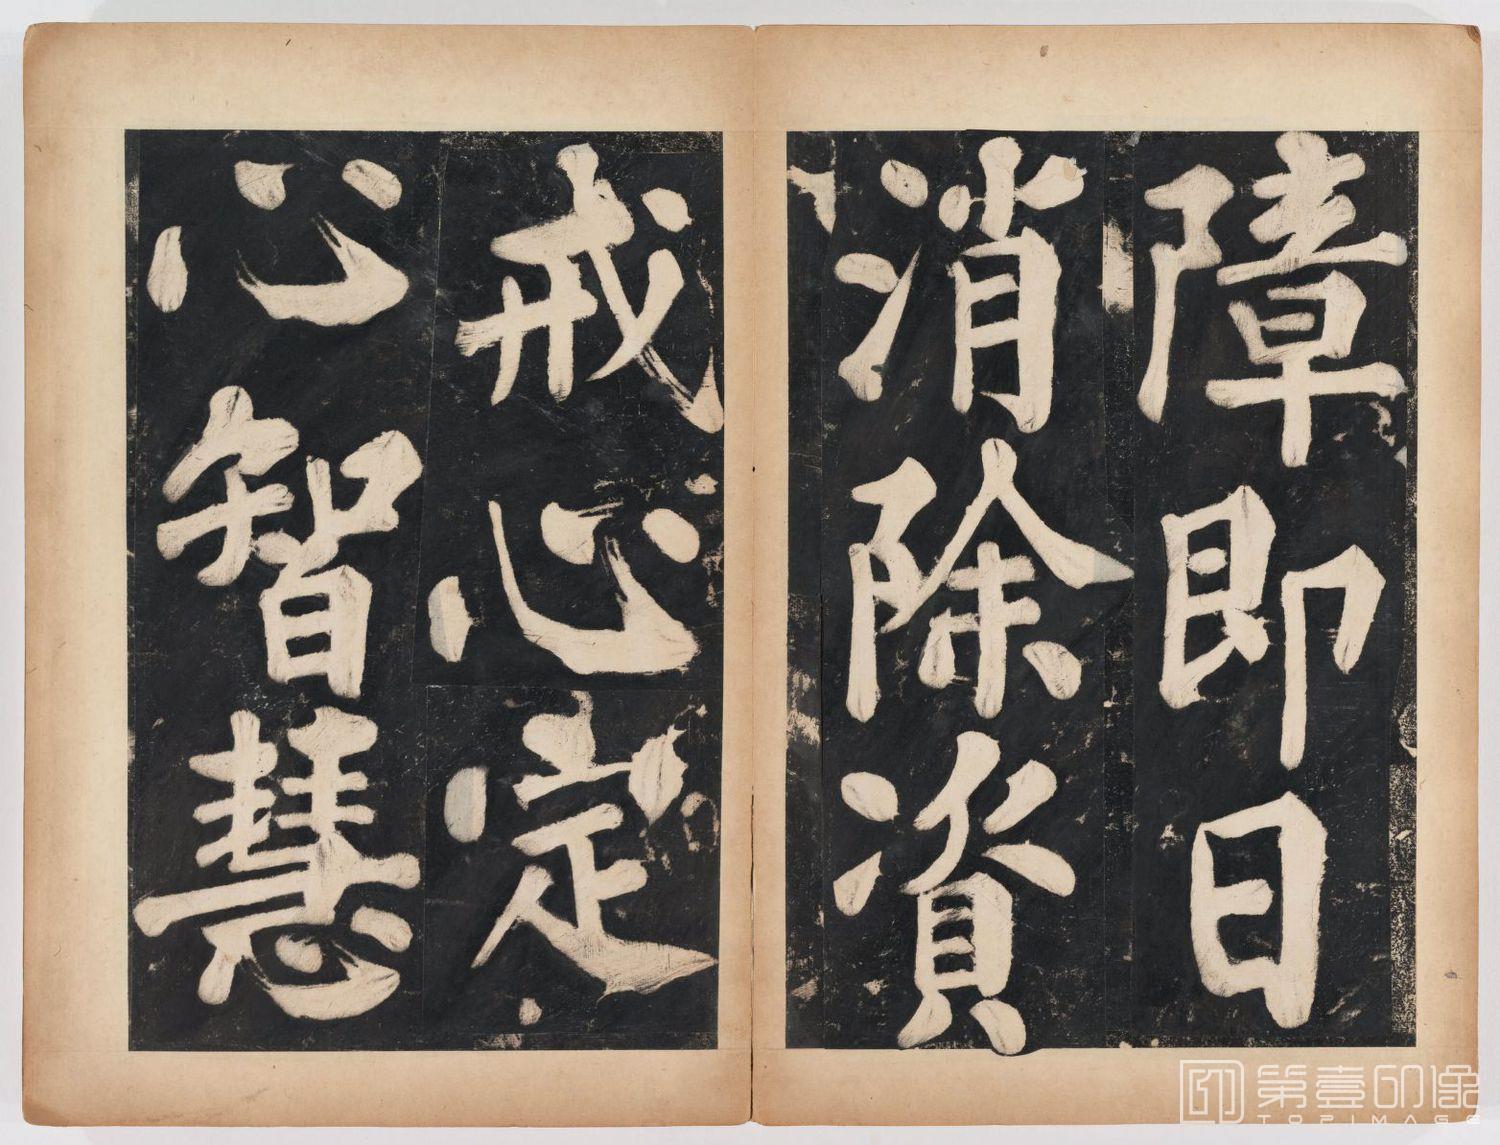 障即日
消除資
戒心定
心智慧
第壹印像
TOPIMAGE